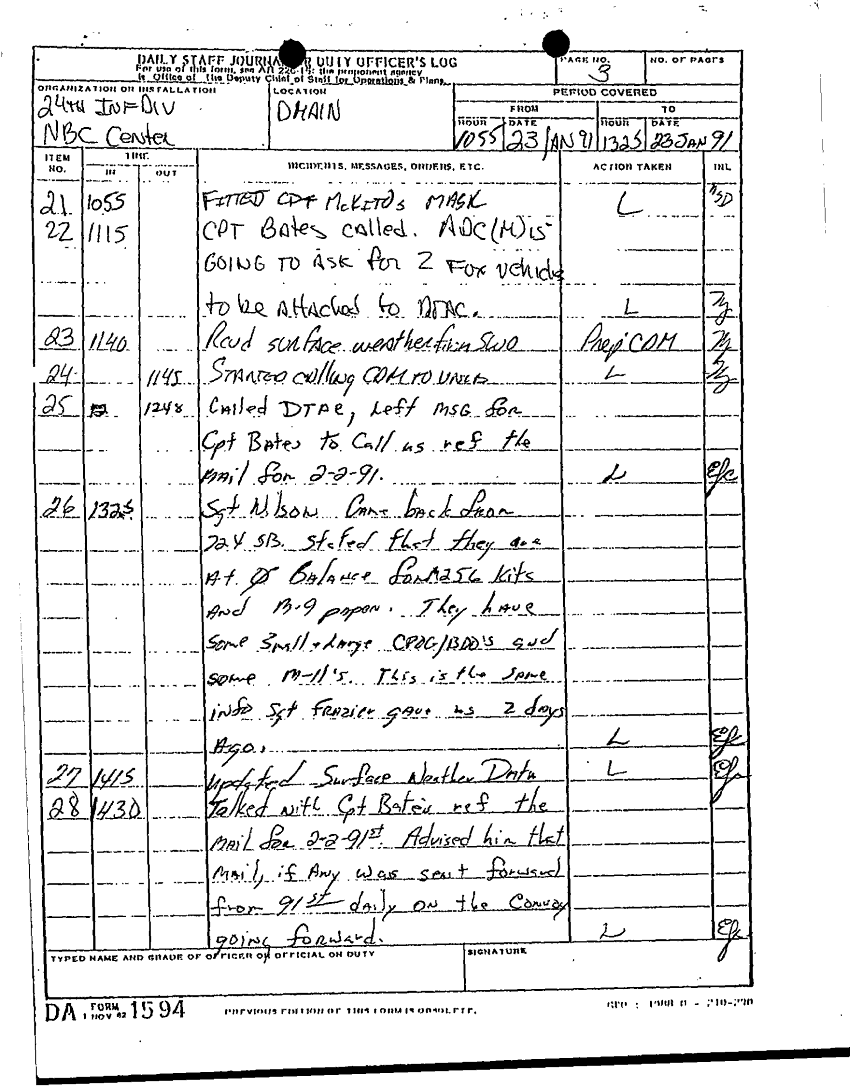 DAILY STAFF JOURNAL OR DUTY OFFICER'S LOG
For use of this form, see AR 220-15; the proponent agency
is Office of The Deputy Chief of Staff for Operations & Plans.
PAGE NO.
3
NO. OF PAGES
ORGANIZATION OR INSTALLATION
24TH INF DIV
NBC Center
LOCATION
DMAIN
PERIOD COVERED
FROM TO
HOUR DATE HOUR DATE
1055 23 JAN 91 1325 23 JAN 91
ITEM NO. TIME IN OUT INCIDENTS, MESSAGES, ORDERS, ETC. ACTION TAKEN INL
21 1055 FITTED MASK L
22 1115 CPT Bates called. ADC(M) is
GOING TO ASK for 2 FOX vehicle
to be Attached to L
23 1140 Rcvd surface weather from SWO Prep CDM
24 1145 STARTED calling CDM TO UNITS L
25 1248 Called left MSG for
Cpt Bates to Call us ref the
Mail for 2-2-91. L Efc
26 1325 Sgt Nlson Came back from
724 SB. Stated that they are
At Ø BALANCE for M256 kits
And M-9 paper. They have
Some Small + Large CPOG/BDO's and
some M-11's. This is the same
info Sgt FRAZIER gave us 2 days
Ago. L Efc
27 1415 updated Surface Weather Data L Efc
28 1430 Talked with Cpt Bates ref the
Mail for 2-2-91st. Advised him that
Mail, if Any was sent forward
from 91st daily on the Convoy
going forward. L Efc
TYPED NAME AND GRADE OF OFFICER OR OFFICIAL ON DUTY
SIGNATURE
DA FORM 1 NOV 62 1594
PREVIOUS EDITION OF THIS FORM IS OBSOLETE.